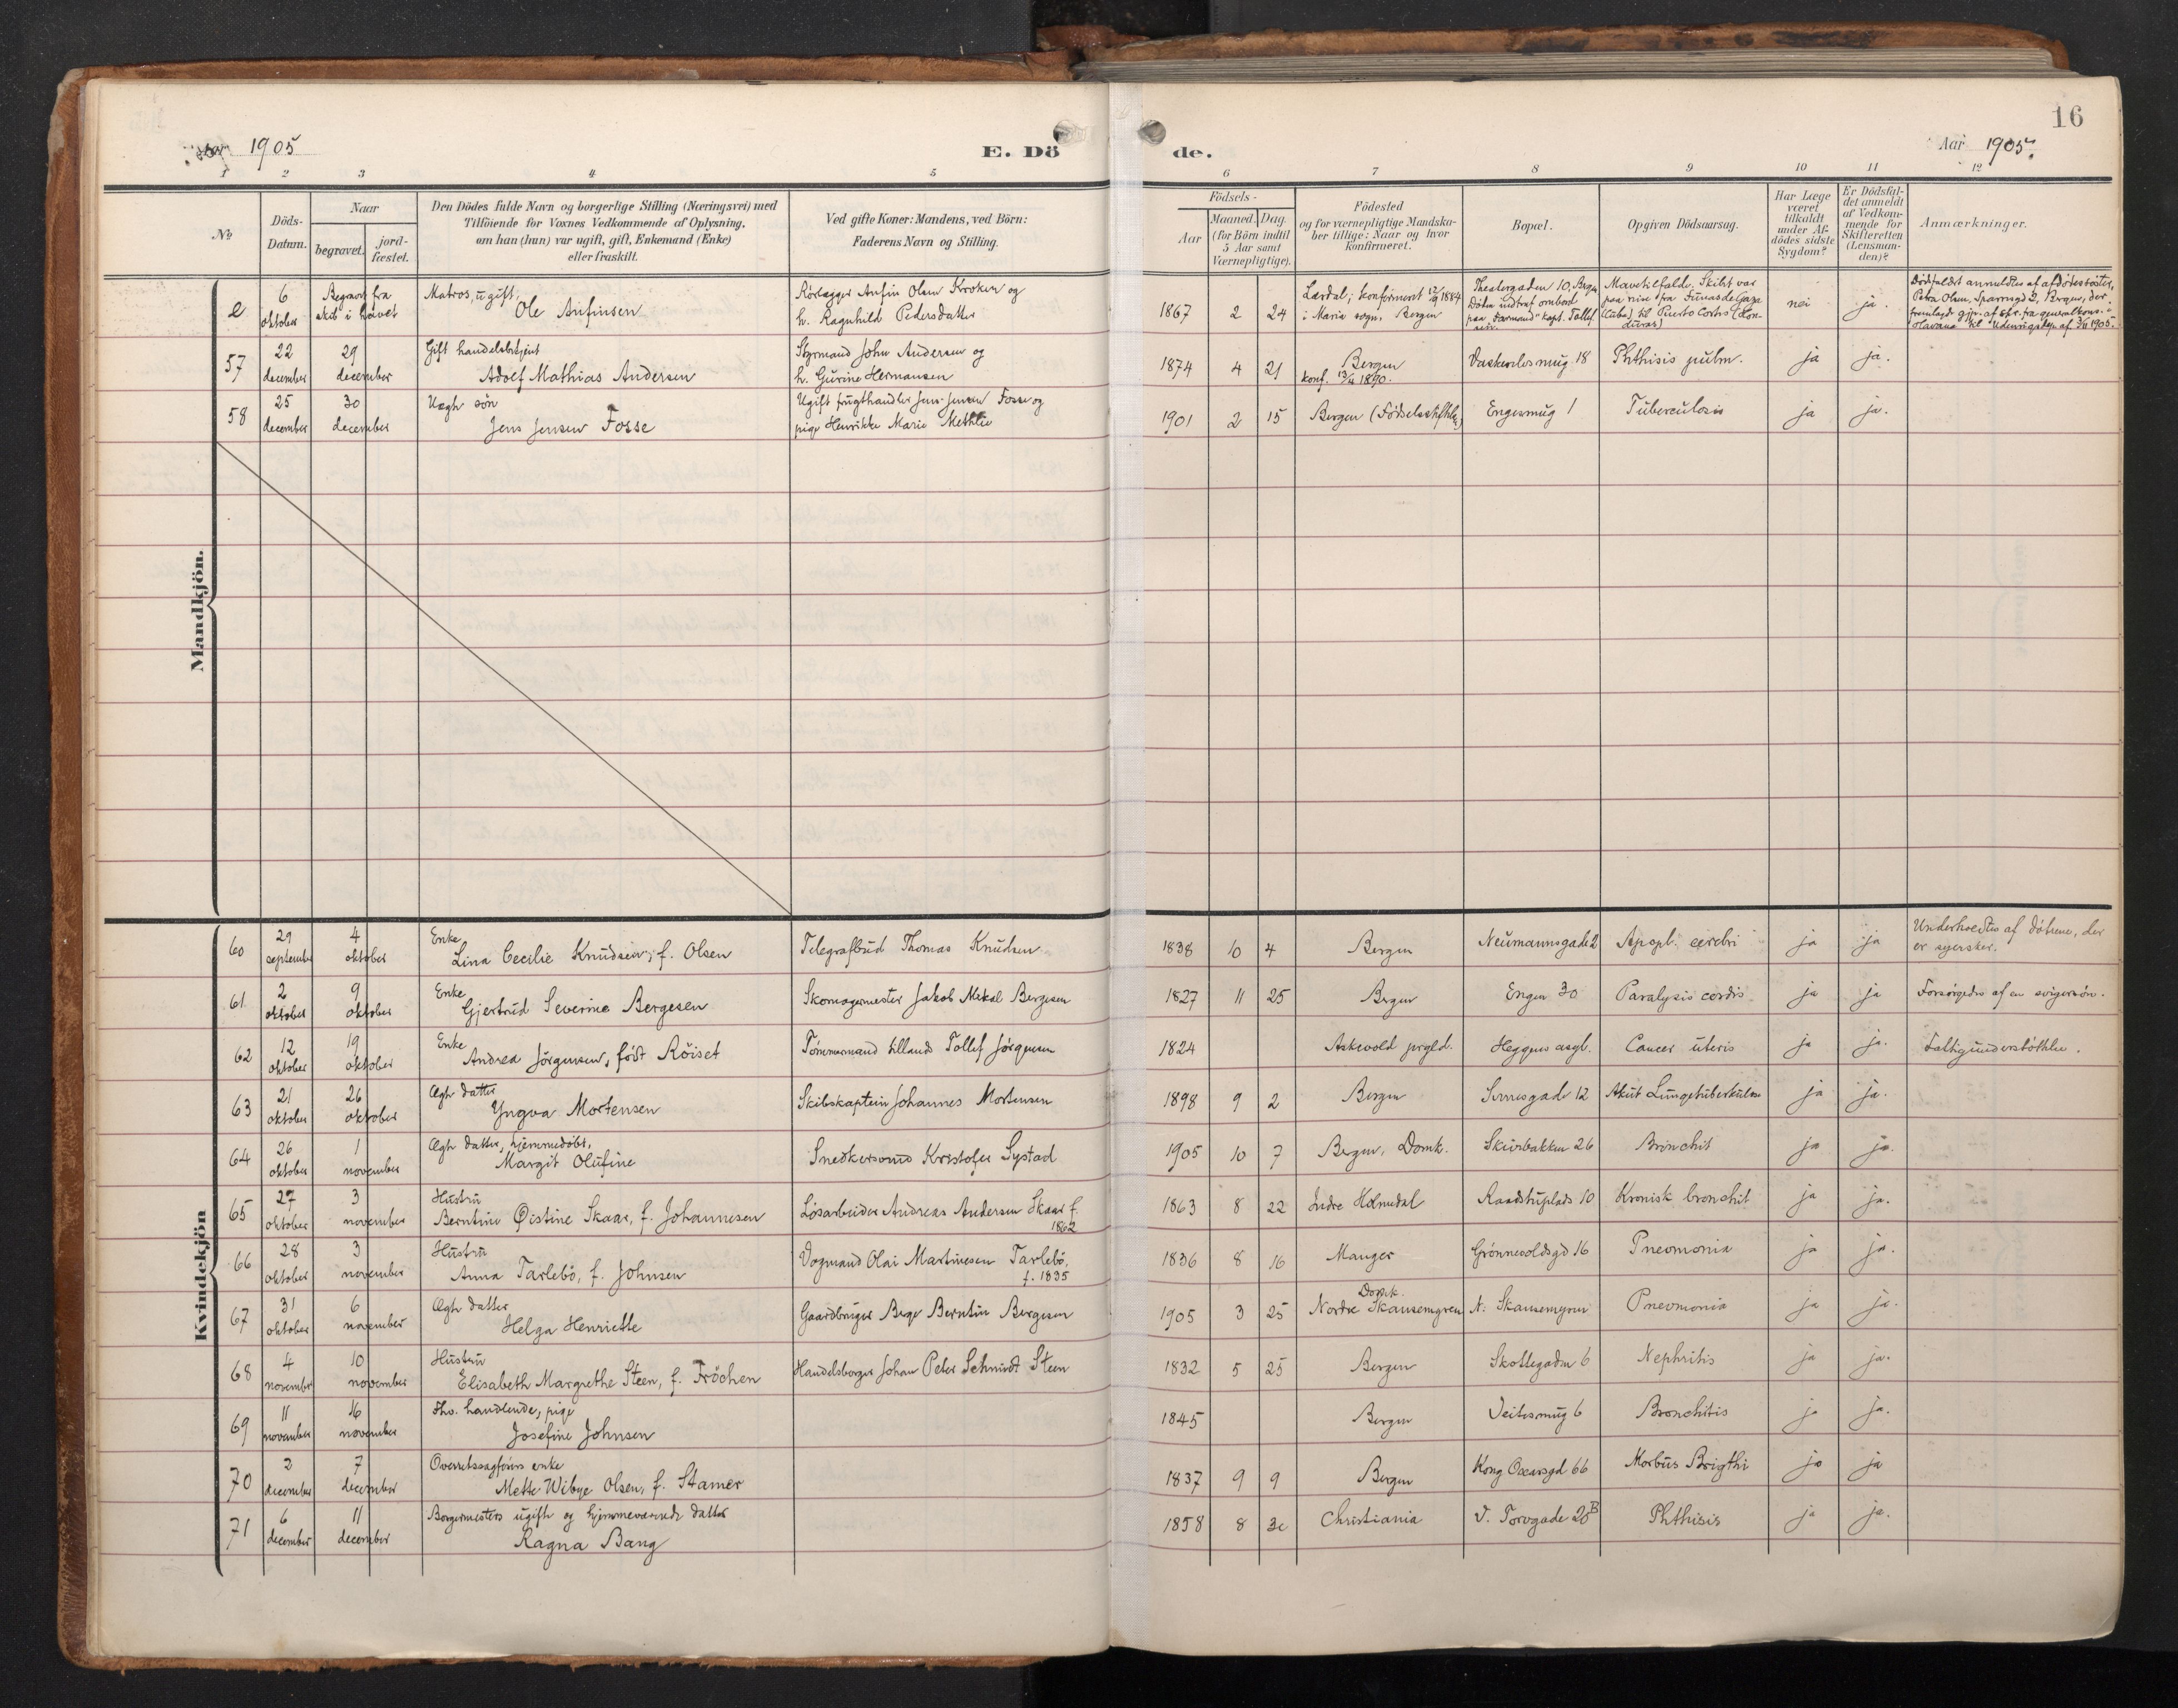 16
Aar 1905
E. Dö
de.
Aar 1905.
1 2 3 4 5 6 7 8 9 10 11 12
№
Döds-Datum.
Naar
begravet.
jord-fæstet.
Den Dödes fulde Navn og borgerlige Stilling (Næringsvei) med
Tilföiende for Voxnes Vedkommende af Oplysning,
om han (hun) var ugift, gift, Enkemand (Enke)
eller fraskilt.
Ved gifte Koner: Mandens, ved Börn:
Faderens Navn og Stilling.
Födsels-
Aar
Maaned. Dag.
(for Börn indtil
5 Aar samt
Værnepligtige).
Födested
og for værnepligtige Mandska-
ber tillige: Naar og hvor
konfirmeret.
Bopæl.
Opgiven Dödsaarsag.
Har Læge
været
tilkaldt
under Af-
dödes sidste
Sygdom?
Er Dödsfal-
det anmeldt
af Vedkom-
mende for
Skifteretten
(Lensman-
den)?
Anmærkninger.
Mandkjön.
e 6 oktober Begravet fra skib i havet Matros, ugift, Ole Anfinsen Rörlægger Anfin Olsen Kroken og h. Ragnhild Pedersdatter 1867 2 24 Lærdal; konfirmeret 12/9 1884 i Maria sogn, Bergen Theatergaden 10, Bergen Döden indtraf ombord paa "Darmand" kapt. Tallef Mavetilfælde. Skibet var paa reise fra (Cuba) til Puerto Cortes (Honduras) nei ja. Dödsfaldet anmeldtes af afdödes söster, Petra Olsen, Sparresgd 2, Bergen, der fremlagde gjp. af skr. fra generalkons. i Havana til Udenrigsdep. af 3/11 1905.
57 22 december 29 december Gift handelsbetjent Adolf Mathias Andersen Styrmand John Andersen og h. Gurine Hermansen 1874 4 21 Bergen konf. 13/4 1890. Vaskerelvsmug. 18 Phthisis pulm. ja ja.
58 25 december 30 december Uægte sön Jens Jensen Fosse Ugift frugthandler Jens Jensen Fosse og pige Henrikke Marie Methlie 1901 2 15 Bergen (Födselsstiftelsen) Engesmug 1 Tuberculosis ja ja.
Kvindekjön
60 29 september 4 oktober Enke Lina Cecilie Knudsen, f. Olsen Telegrafbud Thomas Knudsen 1838 10 4 Bergen Neumannsgade 2 Apopl. cerebri ja ja Underholdtes af dötrene, der er syersker.
61 2 oktober 9 oktober Enke Gjertrud Severine Bergesen Skomagermester Jakob Mekal Bergesen 1827 11 25 Bergen Engen 30 Paralysis cordis ja ja Forsörgedes af en svigersön.
62 12 oktober 19 oktober Enke Andrea Jörgensen, födt Röiset Tömmermand tillands Tollef Jörgensen 1824 Askevold prgld. Hegges asyl. Cancer uteris ja ja. Fattigunderstöttelse.
63 21 oktober 26 oktober Ægte datter Yngva Mortensen Skibskaptein Johannes Mortensen 1898 9 2 Bergen 12 Akut Lungetuberkulose ja ja.
64 26 oktober 1 november Ægte datter, hjemmedöbt, Margit Olufine Snedkersvend Kristofer Systad 1905 10 7 Bergen, Domk. Skivebakken 26 Bronchit ja ja.
65 27 oktober 3 november Hustru Berntine Østine Skaar, f. Johannesen Lösarbeider Andreas Andersen Skaar f. 1862 1863 8 22 Indre Holmedal Raadstuplads 10 Kronisk bronchit ja ja.
66 28 oktober 3 november Hustru Anna Tarlebö, f. Johnsen Vognmand Olai Martinesen Tarlebö, f. 1835 1836 8 16 Manger Grönnevoldsgd 16 Pneumonia ja ja.
67 31 oktober 6 november Ægte datter Helga Henriette Gaardbruger Berge Berntin Bergesen 1905 3 25 Domk. Nordre Skansemyren N. Skansemyren Pneumonia ja ja.
68 4 november 10 november Hustru Elisabeth Margrethe Steen, f. Fröchen Handelsborger Johan Peter Schmidt Steen 1832 5 25 Bergen Skottegaden 6 Nephritis ja ja.
69 11 november 16 november Fhv. handlende, pige Josefine Johnsen 1845 Bergen Veitesmug 6 Bronchitis ja ja.
70 2 december 7 december Overretssagförers enke Mette Wibye Olsen, f. Stamer 1837 9 9 Bergen Kong Oscarsgd 66 Morbus Brigthi ja ja
71 6 december 11 december Borgermesters ugifte og hjemmeværende datter Ragna Bang 1858 8 30 Christiania V. Torvgade 20B Phthisis ja ja.